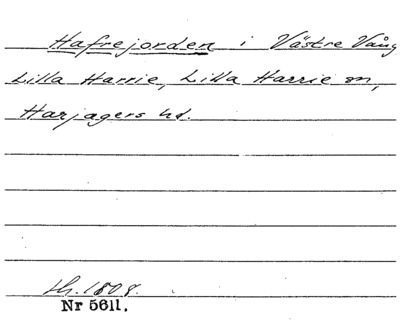 Hafrejorden i Västre Vång
Lilla Harrie, Lilla Harrie sn,
Harjagers hd.
1808.
Nr 5611.